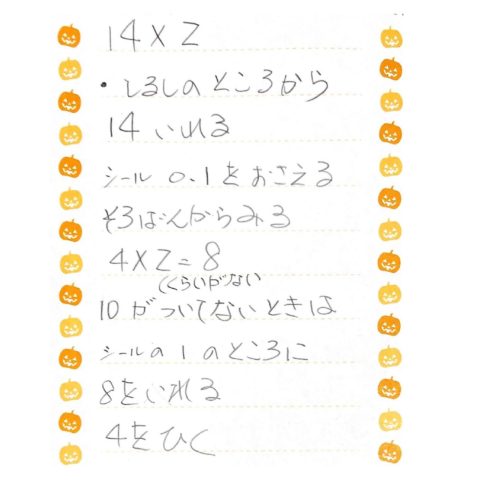 14×2
・しるしのところから
14いれる
シール0.1をおさえる
そろばんからみる
4×2=8
(くらいがない
10がついてないときは
シールの1のところに
8をいれる
4をひく